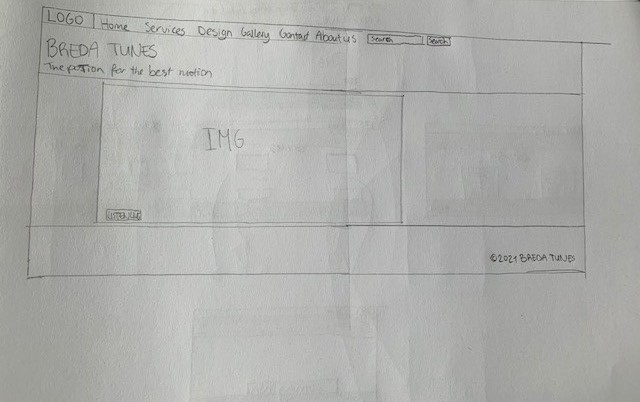 LOGO Home Services Design Gallery Contact About us Search Search
BREDA TUNES
The potion for the best motion
IMG
©2021 BREDA TUNES